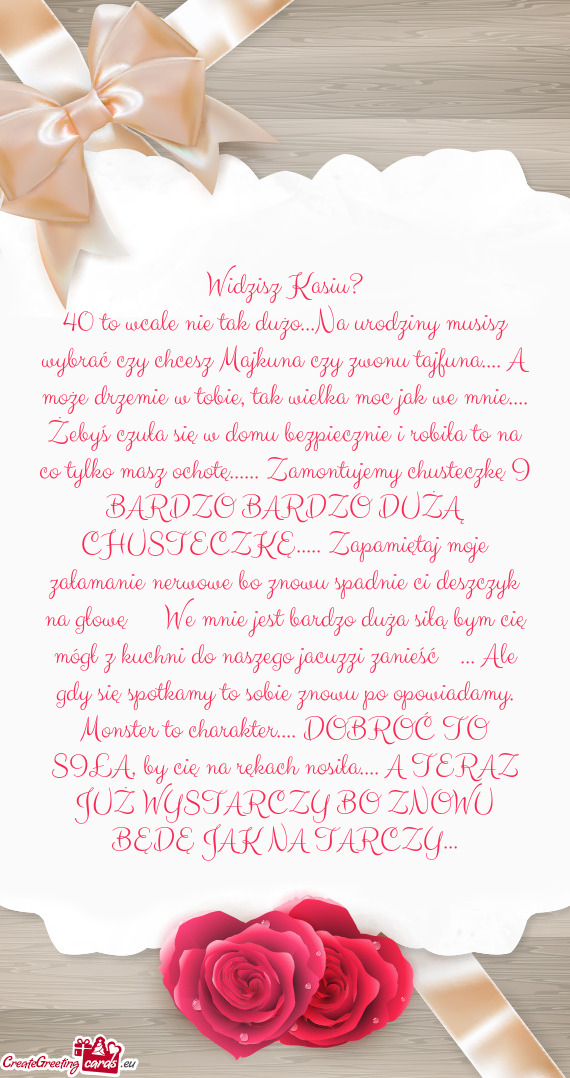 Widzisz Kasiu?
40 to wcale nie tak dużo...Na urodziny musisz
wybrać czy chcesz Majkuna czy zwonu tajfuna.... A
może drzemie w tobie, tak wielka moc jak we mnie....
Żebyś czuła się w domu bezpiecznie i robiła to na
co tylko masz ochotę...... Zamontujemy chusteczkę I
BARDZO BARDZO DUŻĄ
CHUSTECZKĘ..... Zapamiętaj moje
załamanie nerwowe bo znowu spadnie ci deszczyk
na głowę We mnie jest bardzo duża siłą bym cię
mógł z kuchni do naszego jacuzzi zanieść ... Ale
gdy się spotkamy to sobie znowu po opowiadamy.
Monster to charakter.... DOBROĆ TO
SIŁA, by cię na rękach nosiła.... A TERAZ
JUŻ WYSTARCZY BO ZNOWU
BĘDĘ JAK NA TARCZY...
CreateGreeting cards .eu